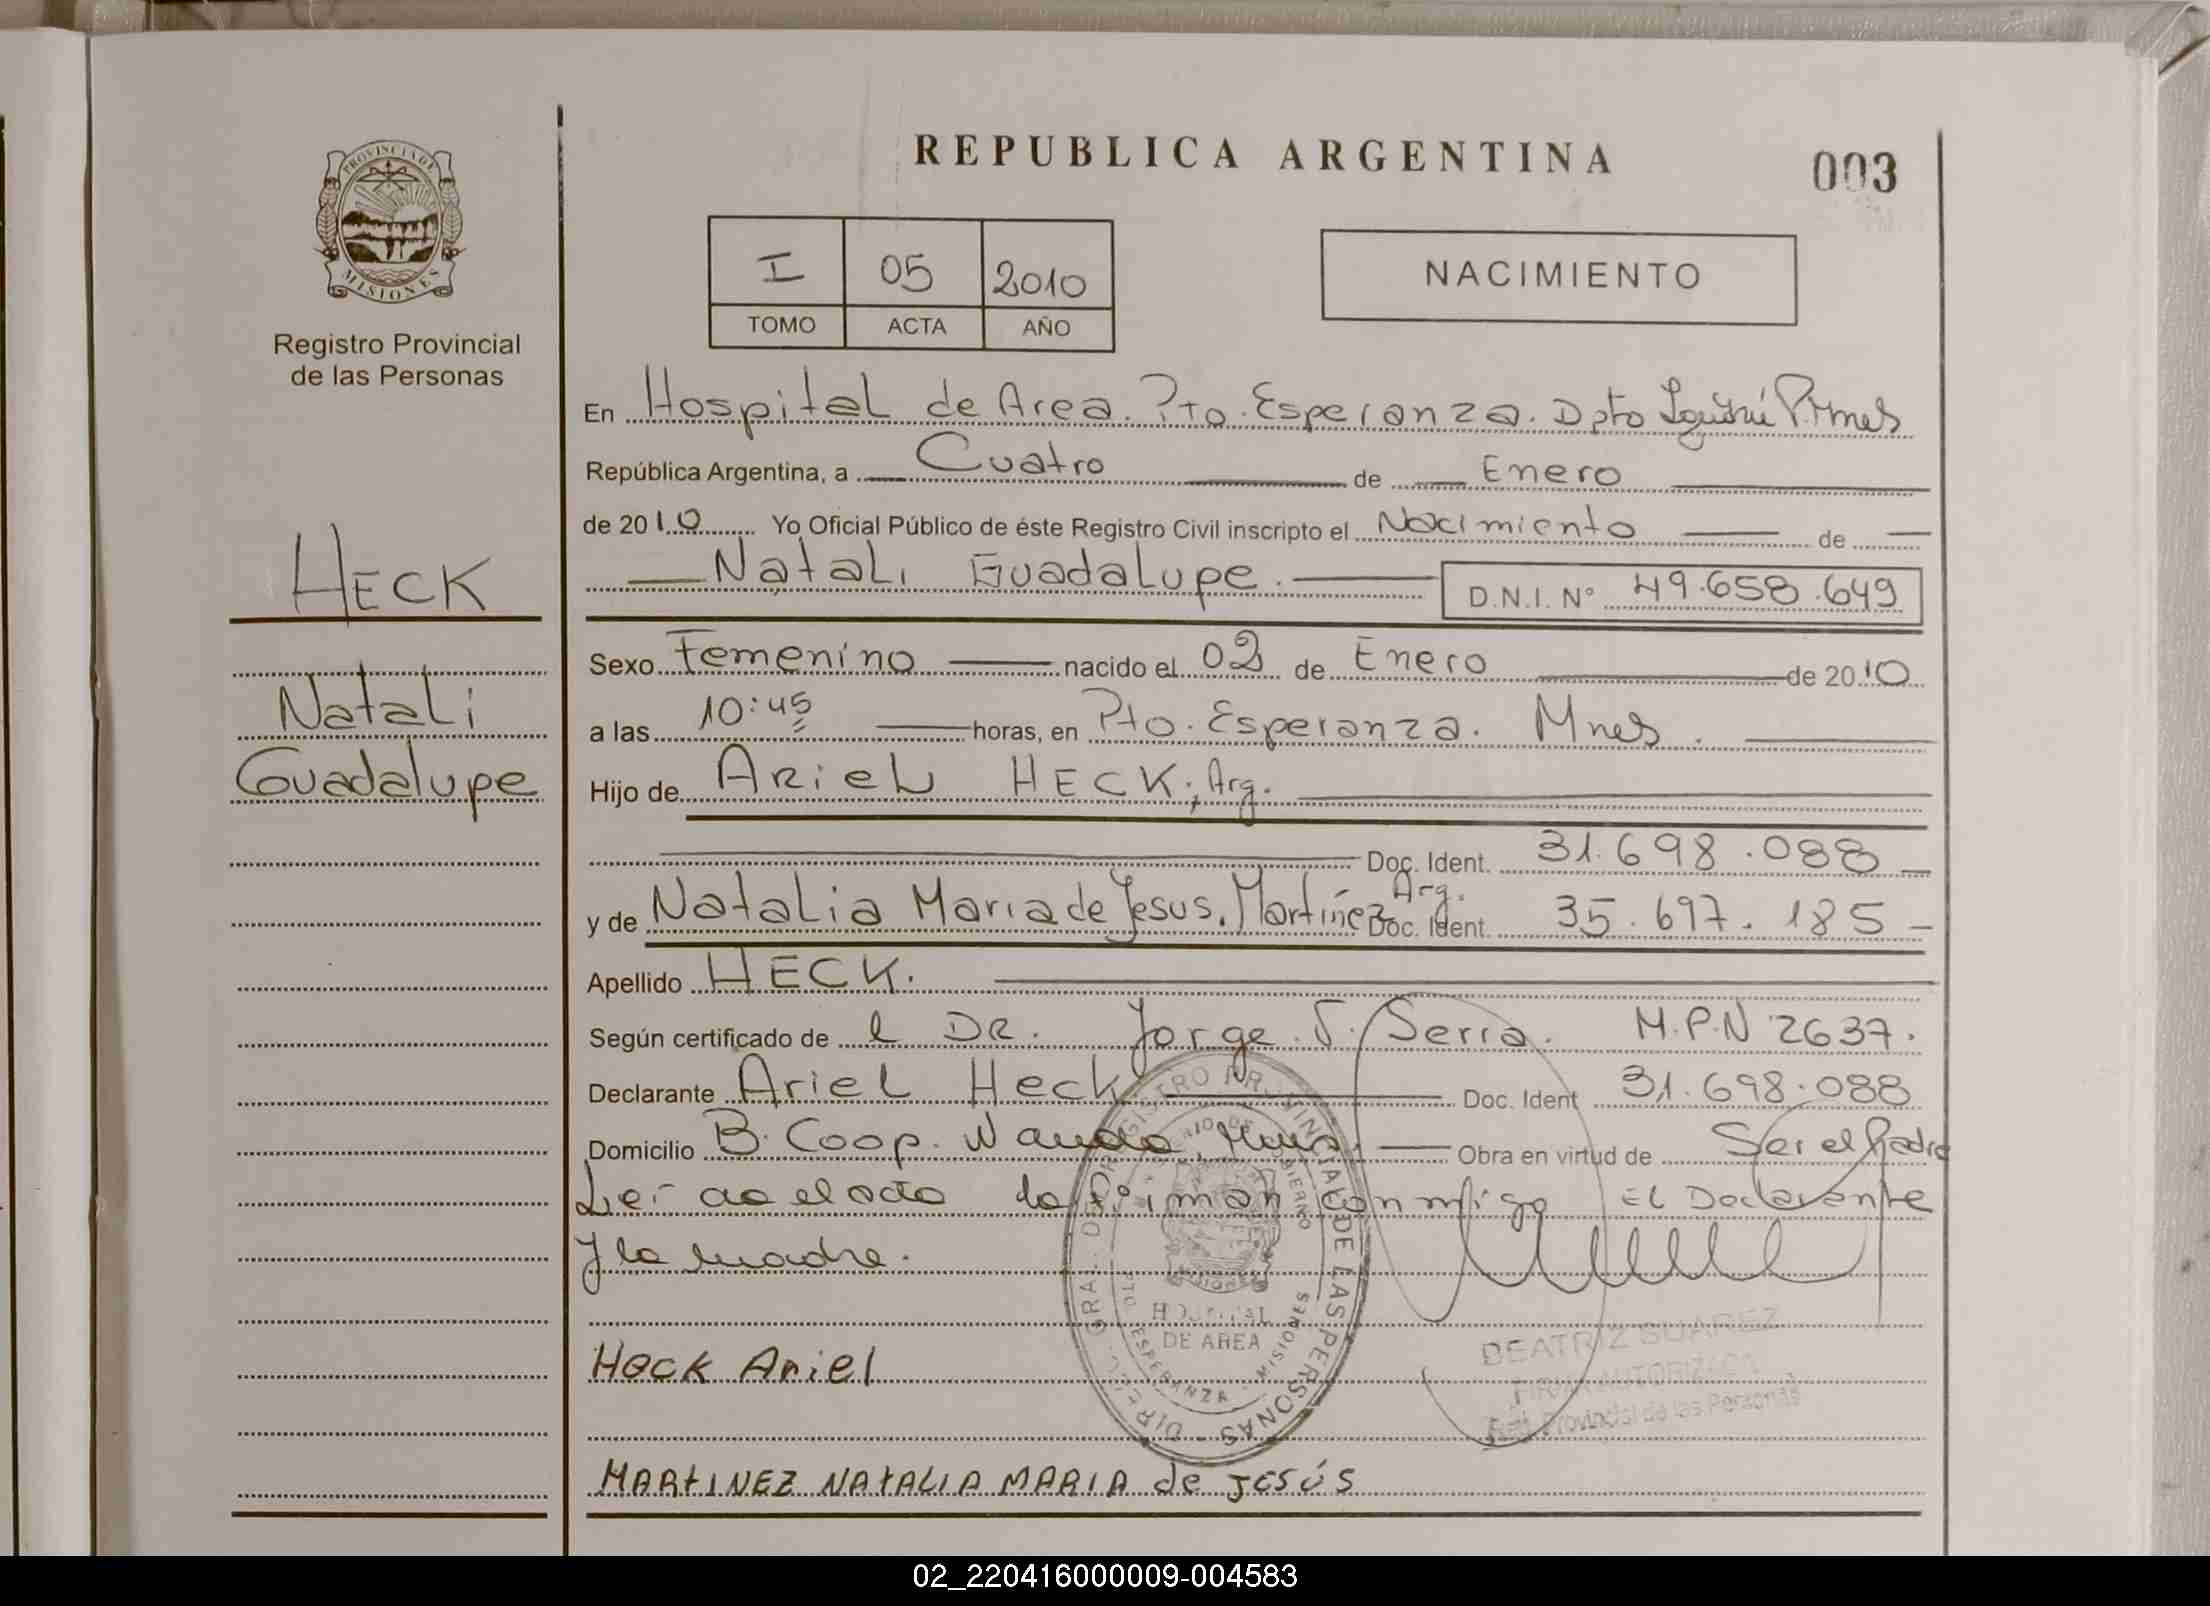 REPUBLICA ARGENTINA
003
PROVINCIA DE
MISIONES
Registro Provincial
de las Personas
I 05 2010
TOMO ACTA AÑO
NACIMIENTO
HECK
Natali
Guadalupe
En Hospital de Area. Pto. Esperanza. Dpto Iguazú P. Mnes
República Argentina, a Cuatro de Enero
de 2010 Yo Oficial Público de éste Registro Civil inscripto el Nacimiento de
Natali Guadalupe. D.N.I. N° 49.658.649
Sexo Femenino nacido el 02 de Enero de 2010
a las 10:45 horas, en Pto. Esperanza. Mnes.
Hijo de Ariel HECK; Arg.
Doc. Ident. 31.698.088
y de Natalia Maria de Jesus. Martínez Arg. Doc. Ident. 35.697.185
Apellido HECK.
Según certificado de l DR. Jorge J. Serra. M.P.N 2637.
Declarante Ariel Heck Doc. Ident 31.698.088
Domicilio B. Coop. Wanda, Mnes. Obra en virtud de Ser el Padre
Leída el acta la firman conmigo El Declarante
y la madre.
DIRECC. GRAL. DEL REGISTRO PROVINCIAL DE LAS PERSONAS
HOSPITAL
DE AREA
PTO ESPERANZA - MISIONES
BEATRIZ SUAREZ
FIRMA AUTORIZADA
Reg. Provincial de las Personas
Heck Ariel
MARTINEZ NATALIA MARIA de JESÚS
02_220416000009-004583